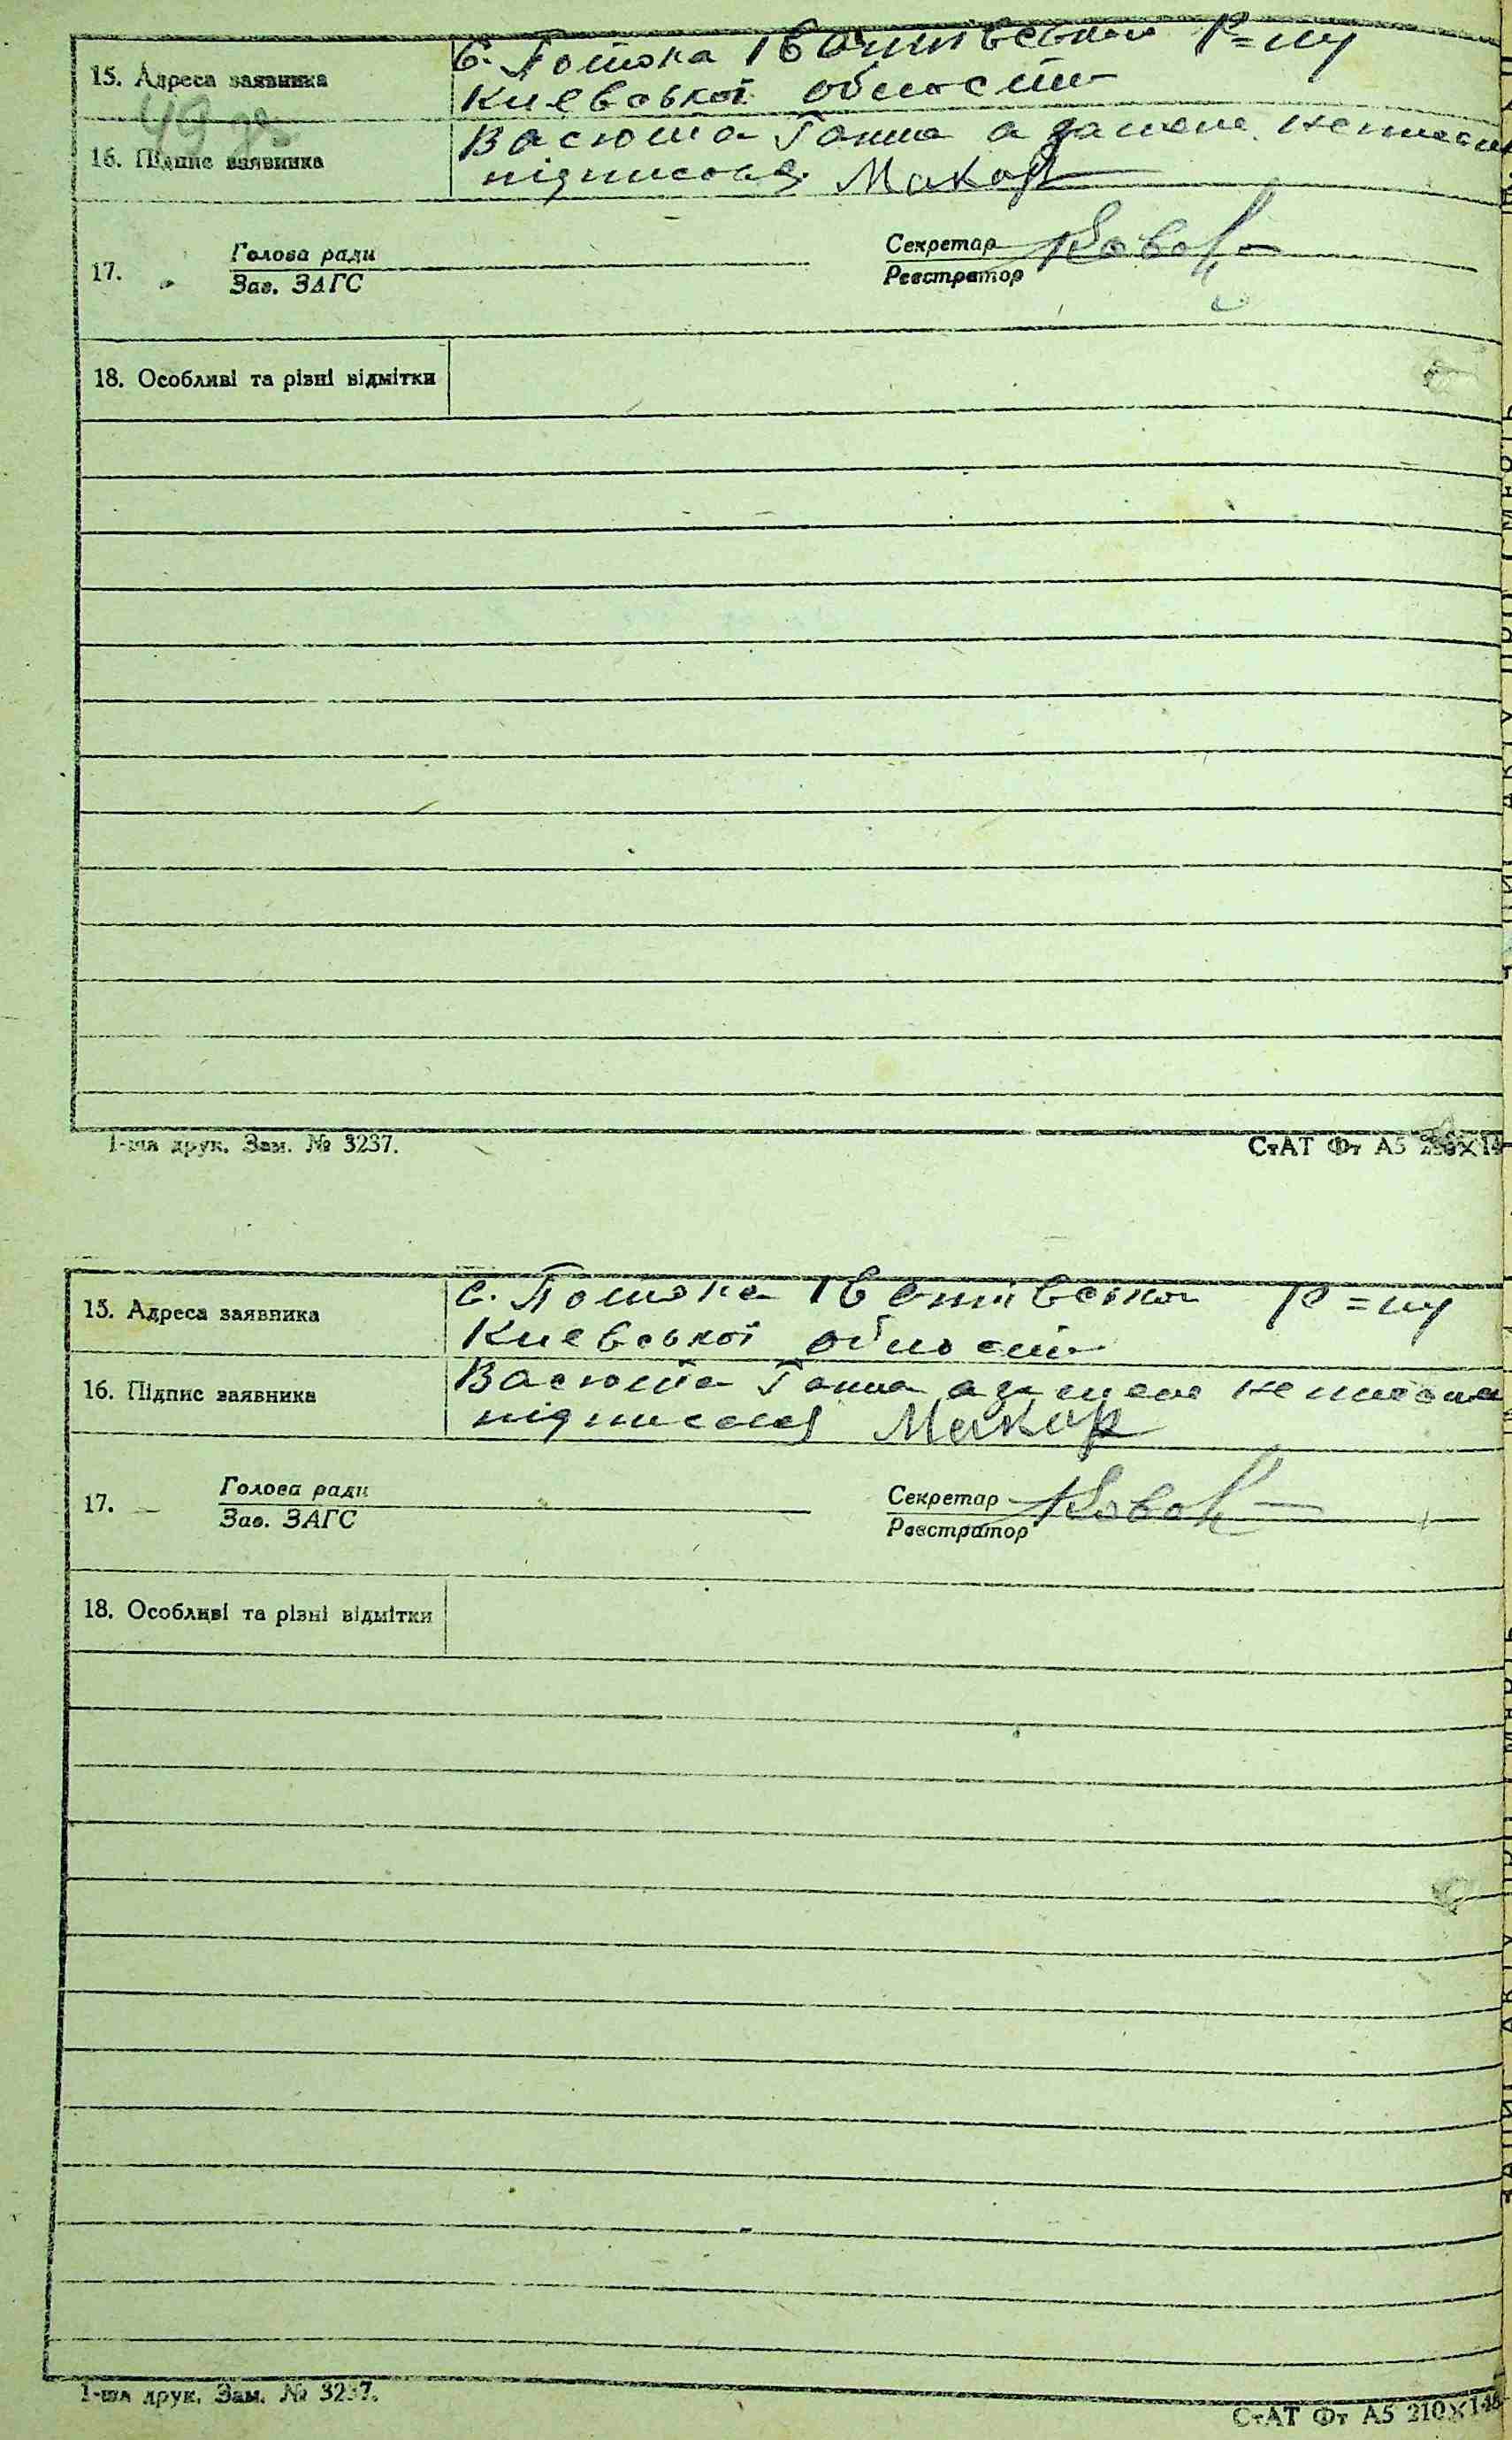 15. Адреса заявника
с. Потока
Р=ну
Киевської області
49 зв
16. Підпис заявника
Васюта Ганна а за мене неписьм
підписався Макар
17.
Голова ради
Зав. ЗАГС
Секретар
Реєстратор
18. Особливі та різні відмітки
1-ша друк. Зам. № 3237.
СтАТ Фт А5
15. Адреса заявника
с. Потока
Р=ну
Киевської області
16. Підпис заявника
Васюта Ганна а за мене неписьмен
підписався Макар
17.
Голова ради
Зав. ЗАГС
Секретар
Реєстратор
18. Особливі та різні відмітки
1-ша друк. Зам. № 3237.
СтАТ Фт А5 210×148